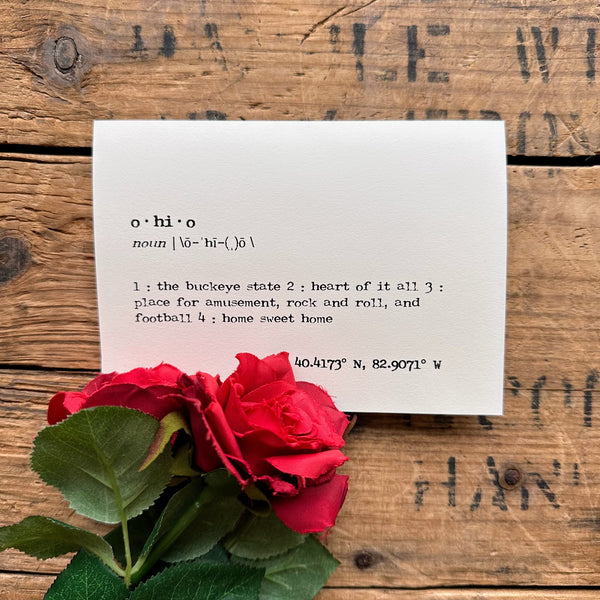 o·hi·o
noun | \ō-ˈhī-(ˌ)ō \
1 : the buckeye state 2 : heart of it all 3 :
place for amusement, rock and roll, and
football 4 : home sweet home
40.4173° N, 82.9071° W